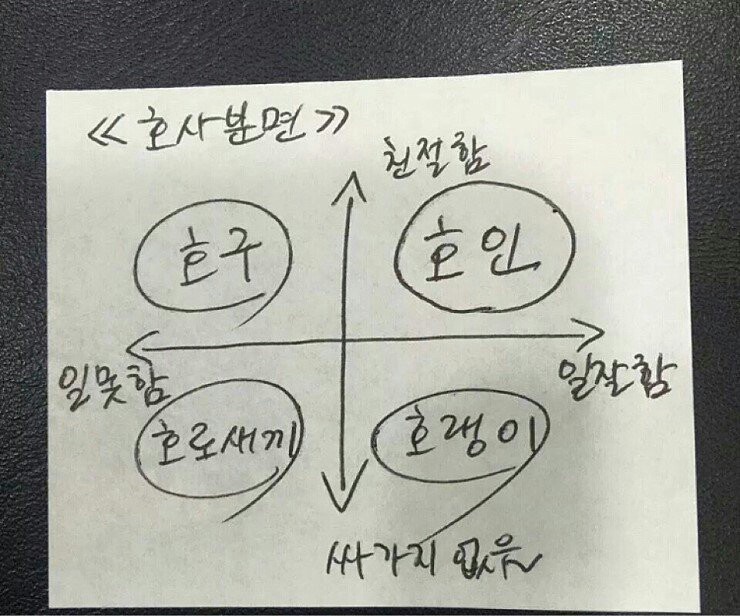 <<호사분면>>
친절함
호구 호인
일못함 일잘함
호로새끼 호랭이
싸가지 없음~